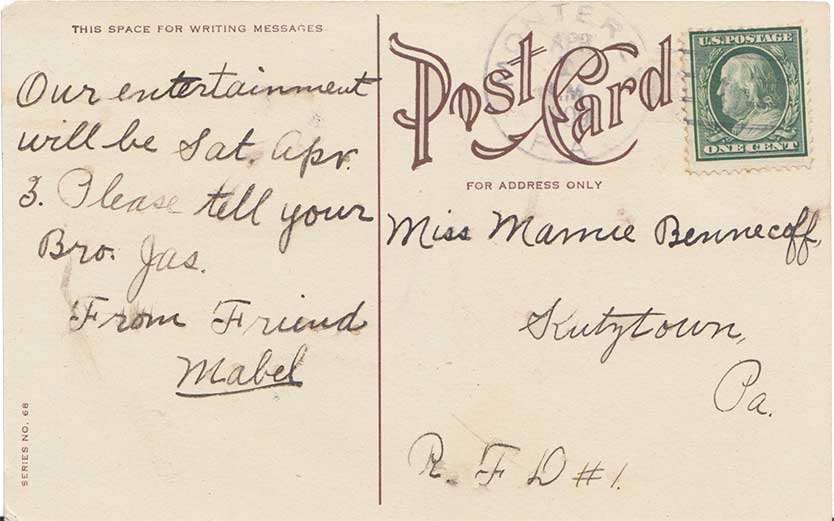 THIS SPACE FOR WRITING MESSAGES
Our entertainment
will be Sat. Apr.
3. Please tell your
Bro. Jas.
From Friend
Mabel
SERIES NO. 68
Post Card
FOR ADDRESS ONLY
MONTER
APR
PA
U.S. POSTAGE
ONE CENT
Miss Mamie Bennecoff,
Kutztown,
Pa.
R. F D #1.